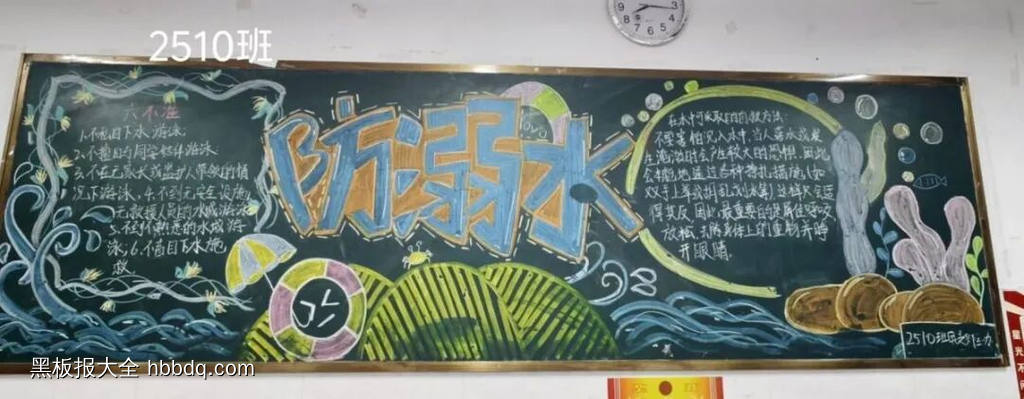 2510班
六不准
1.不私自下水游泳
2.不擅自与同学结伴游泳
3.不在无家长或监护人带领的情
况下游泳,4.不到无安全设施
无救援人员的水域游泳
5.不到不熟悉的水域游
泳,6.不盲目下水施
救
防溺水
在水中可采取的自救方法:
不要害怕沉入水中,当人落水或发
生淹溺时会产生较大的恐惧,因此
会本能地通过各种挣扎措施(如
双手上举
得其反,因此,最重要的是屏住呼吸
放松
开眼睛.
2510班
黑板报大全 hbbdq.com